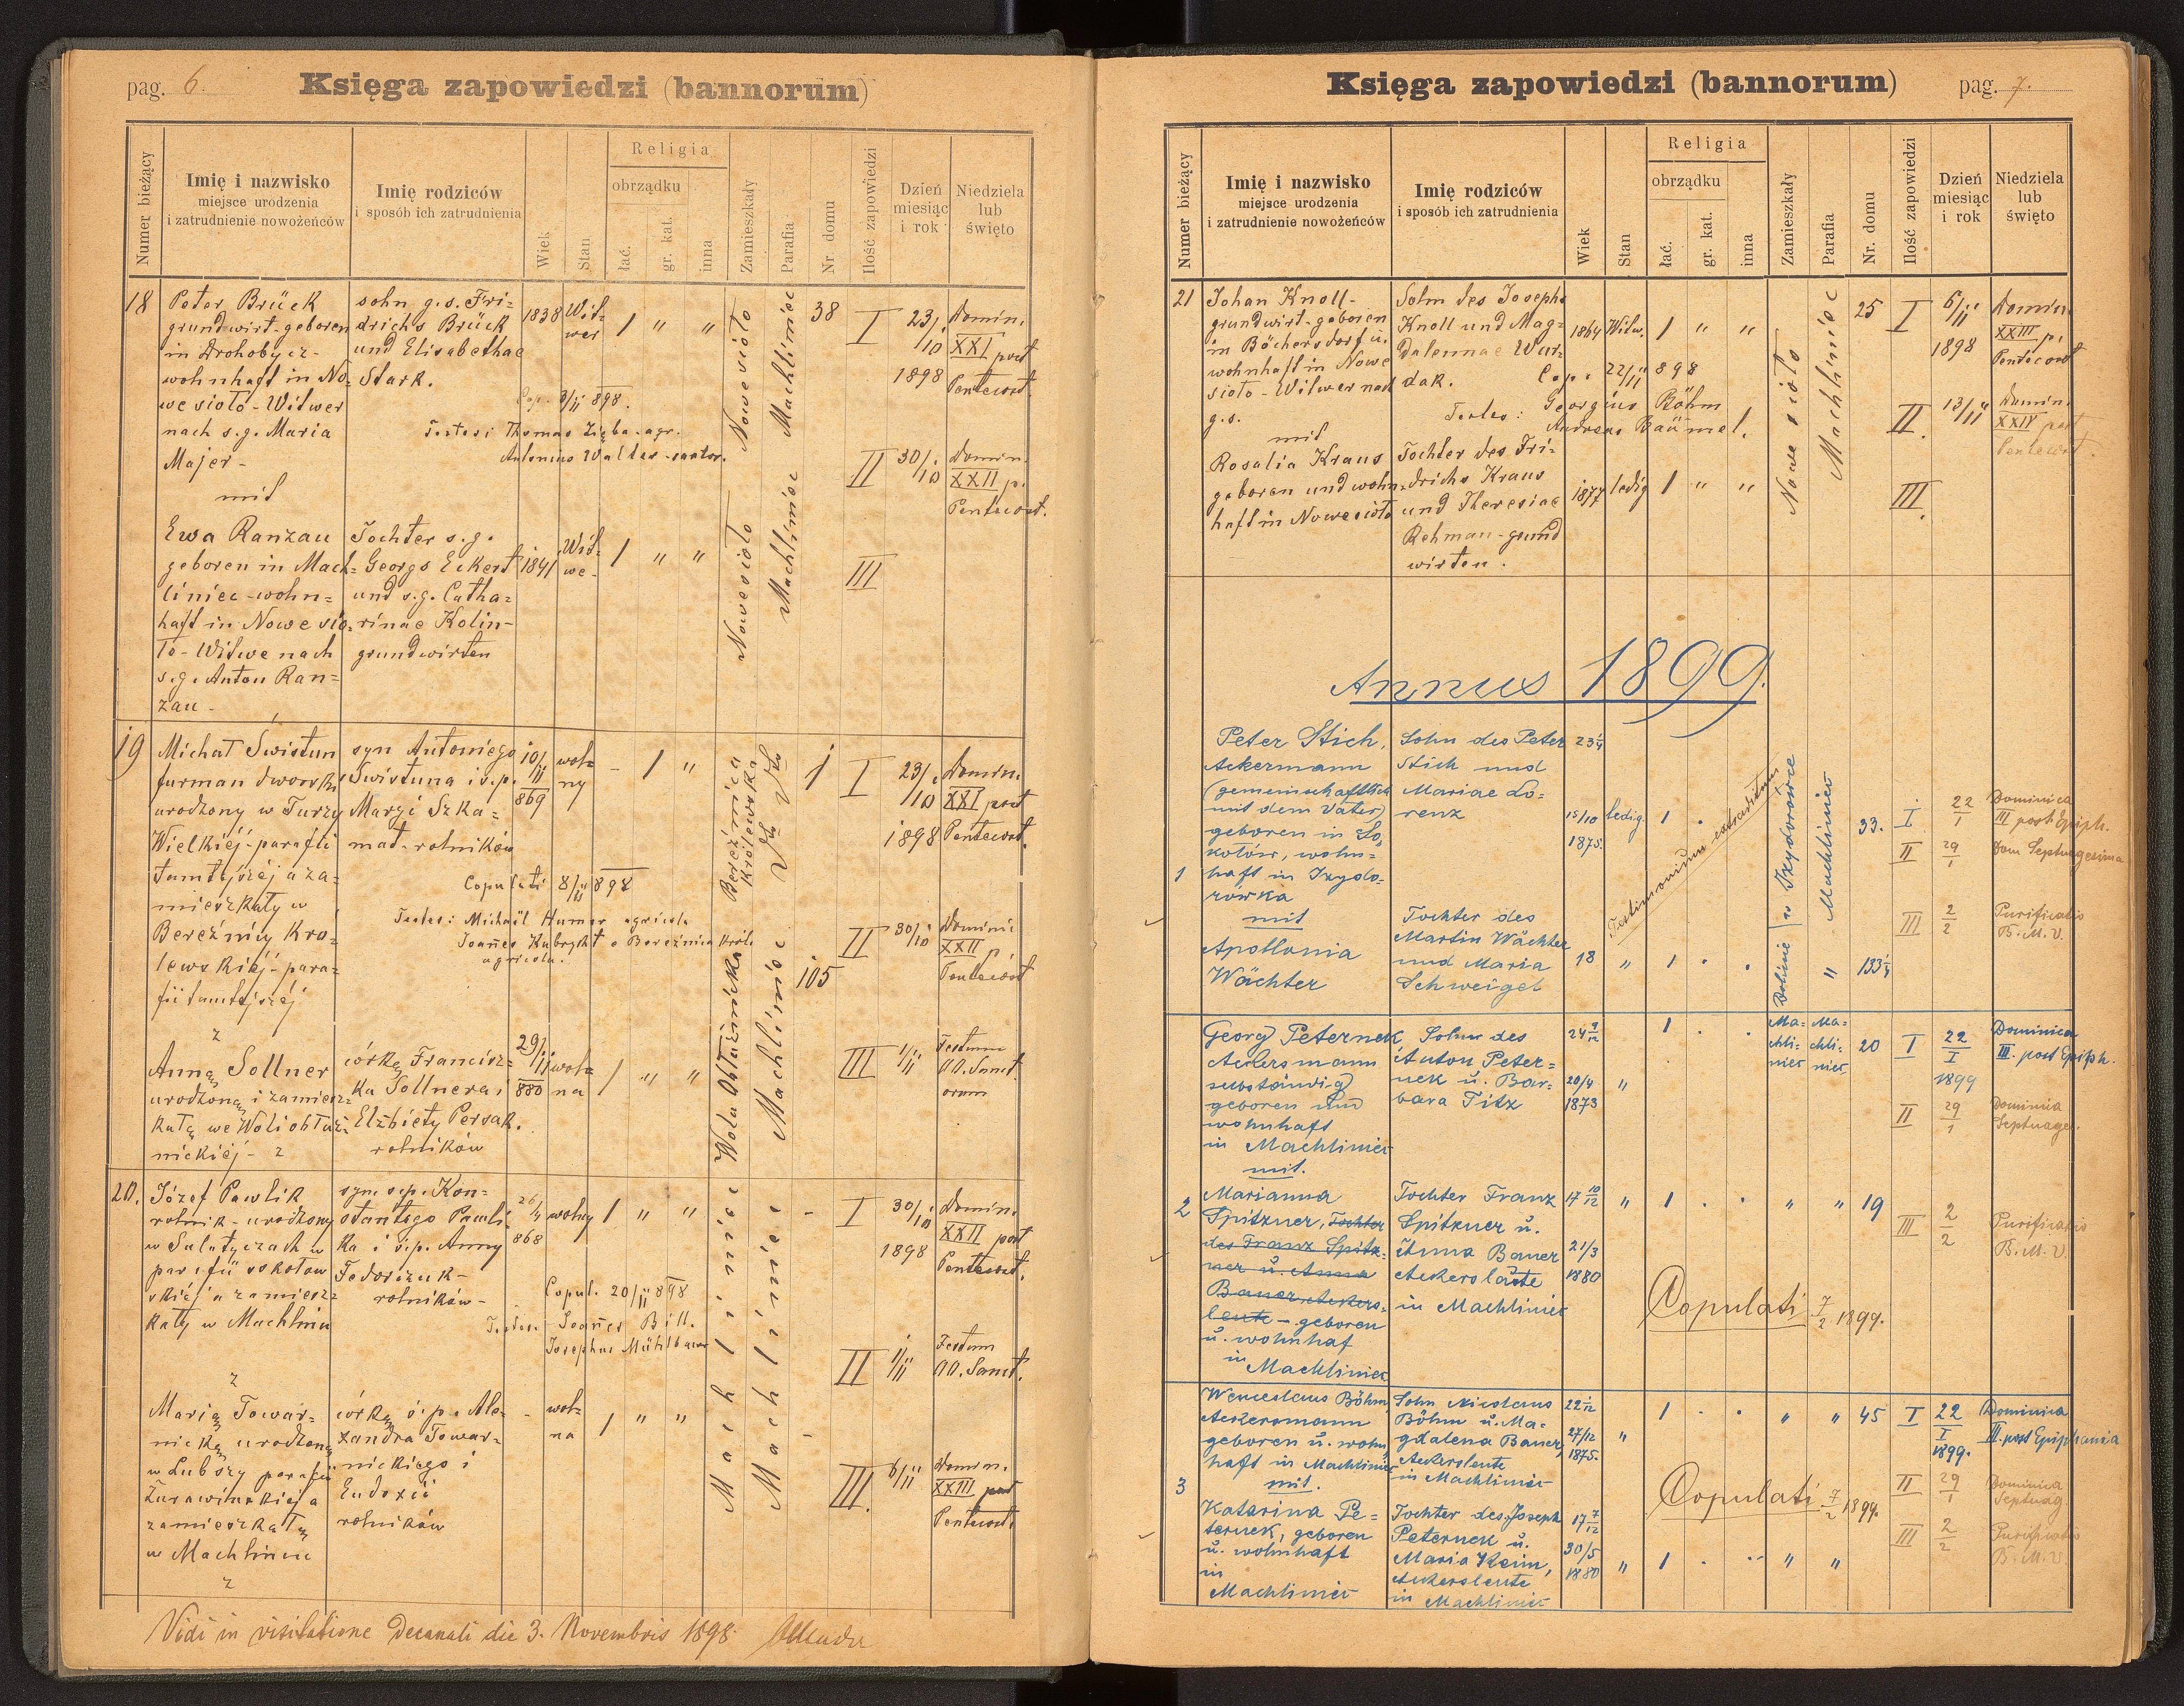 pag. 6.
Księga zapowiedzi (bannorum)
Numer bieżący
Imię i nazwisko
miejsce urodzenia
i zatrudnienie nowożeńców
Imię rodziców
i sposób ich zatrudnienia
Wiek
Stan
Religia
obrządku
łać.
gr. kat.
inna
Zamieszkały
Parafia
Nr. domu
Ilość zapowiedzi
Dzień
miesiąc
i rok
Niedziela
lub
święto
18
Peter Brück
grundwirt-geboren
in Drohobycz-
wohnhaft in No-
wesioło-Witwer
nach s.g. Maria
Majer-
mit
Ewa Ranzau
geboren in Mach=
liniec-wohn=
haft in Nowe sio=
ło-Witwe nach
s.g. Anton Ran=
zau-
sohn g.s. Fri=
drichs Brück
und Elisabethae
Stark.
Cop. 8/11 898.
Testes: Thomas Zięba-agr.
Antonius Walter-cantor.
Tochter s.g.
Georgs Eckert
und s.g. Catha=
rinae Kolin-
grundwirten
1838
Wit=
wer
1 " "
1841
Wit=
we-
1 " "
Nowesioło
Machliniec
Nowesioło
Machliniec
38
I
23/10
1898
Domin.
XXI post
Pentecost.
II
30/10
Domin.
XXII p.
Pentecost.
III
19
Michał Świstun
furman dworski
urodzony w Turzy
Wielkiéj-parafii
tamtejszéj a za=
mieszkały w
Bereźnicy Kró=
lewskiéj-para=
fii tamtejszéj
z
Anną Sollner
urodzoną i zamiesz=
kałą we Woli obłaź=
nickiéj- z
syn Antoniego
Świstuna i ś.p.
Maryi Szka=
mat-rolników
Copulati 8/11 898
Testes: Michaïl Humer agricola
Joañes Kubrycht e Bereźnica Król.
agricola.
córką Francisz=
ka Sollnera i
Elżbiety Persak.
rolników
10/11
869
wol=
ny
- 1 "
29/11
880
wol=
na
1 " "
Bereźnica
Królewska
Wola Obłaźnicka
Machliniec
1
105
I
23/10
1898
Domin.
XXI post
Pentecost.
II
30/10
Domini
XXII p.
Pentecost
III
1/11
Festum
OO. Sanct.
orum
20.
Józef Pawlik
rolnik-urodzony
w Sulatyczach w
parafii sokołow
skiéj a zamiesz=
kały w Machlińcu
z
Marią Towar=
nicką urodzoną
w Lubszy parafii
Żurawińskiéj a
zamieszkałą
w Machlincu
z
syn ś.p. Kon=
stantego Pawli
ka i ś.p. Anny
Fedorczuk-
rolników-
Copul. 20/11 898
Testes- Joañes Bill.
Josephus Mühlbauer
córką ś.p. Ale-
xandra Towar=
nickiego i
Eudoxii
rolników
26/4
868
wolny
1 " "
-
wol=
na
1 " "
Machliniec
Machliniec
-
-
I
30/10
1898
Domin.
XXII post
Pentecost.
II
1/11
Festum
OO. Sanct.
III.
6/11
Domin.
XXIII post
Pentecost.
Vidi in visitatione Decanali die 3. Novembris 1898.
Księga zapowiedzi (bannorum)
pag. 7.
Numer bieżący
Imię i nazwisko
miejsce urodzenia
i zatrudnienie nowożeńców
Imię rodziców
i sposób ich zatrudnienia
Wiek
Stan
Religia
obrządku
łać.
gr. kat.
inna
Zamieszkały
Parafia
Nr. domu
Ilość zapowiedzi
Dzień
miesiąc
i rok
Niedziela
lub
święto
21
Johan Knoll-
grundwirt-geboren
in Böchersdorf u.
wohnhaft in Nowe
sioło-Witwer nach
g.s.
mit
Rosalia Kraus
geboren und wohn=
haft in Nowesioło
Sohn des Josephs
Knoll und Mag=
dalennae War=
dak.
Cop. 22/11 898
Testes: Georgius Böhm
Andreas Baümel.
Tochter des Fri=
drichs Kraus
und Theresiae
Rehman-grund
wirten.
1864
Witw.
1 " "
1877
ledig
1 " "
Nowe sioło
Machliniec
25
I
6/11
1898
Domin.
XXIII p.
Pentecost
II.
13/11
Domin.
XXIV post
Pentecost.
III.
Annus 1899.
1
Peter Stich,
Ackermann
(gemeinschaftlich
mit dem Vater)
geboren in So=
kołów, wohn=
haft in Izydo=
rówka
mit
Apollonia
Wächter
Sohn des Peter
Stich und
Mariae Lo=
renz
Tochter des
Martin Wächter
und Maria
Schweigel
23 1/4
15/10
1875.
ledig
1 . .
18
"
1 . .
Testimonium extraditum
w Izydorówce
Machliniec
Dolinie
"
33.
133 1/4
I
22/1
Dominica
III post Epiph.
II
29/1
Dom Septuagesima
III
2/2
Purificatio
B.M.V.
2
Georg Peternek
Ackersmann
selbständig
geboren und
wohnhaft
in Machliniec
mit.
Marianna
Spitzner, Tochter
des Franz Spitz=
ner u. Anna
Bauer Ackers=
leute - geboren
u. wohnhaf
in
Machliniec
Sohn des
Anton Peter=
nek u. Bar=
bara Titz
Tochter Franz
Spitzner u.
Anna Bauer
Ackersleute
in Machliniec
24 9/12
20/4
1873
"
1 . .
17 10/12
21/3
1880
"
1 . .
Ma=
chli=
niec
Ma=
chli=
niec
" "
20
19
I
22/I
1899
Dominica
III. post Epiph.
II
29/1
Dominica
Septuages.
III
2/2
Purificatio
B.M.V.
Copulati 7/2 1899.
3
Wenceslaus Böhm,
Ackersmann
geboren u. wohn
haft in Machliniec
mit.
Katarina Pe=
ternek, geboren
u. wohnhaft
in
Machliniec
Sohn Nicolaus
Böhm u. Ma=
gdalena Bauer,
Ackersleute
in Machliniec
Tochter des Joseph
Peternek u.
Maria Keim,
Ackersleute
in Machliniec
22 1/12
27/12
1875.
"
1 . .
17 7/12
30/5
1880
"
1 . .
" "
" "
45
I
22/I
1899.
Dominica
III. post Epiphania
II
29/1
Dominica
Septuag.
III
2/2
Purificatio
B.M.V.
Copulati 7/2 1899.